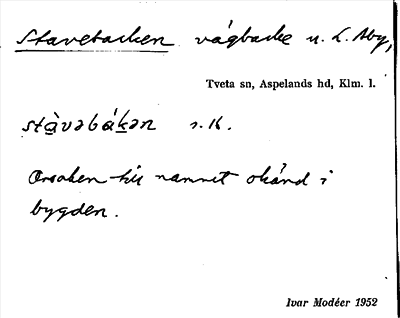 Stavebacken vägbacke u. L. Aby,
Tveta sn, Aspelands hd, Klm. l.
stàvəbákən s. th.
Orsaken till namnet okänd i
bygden.
Ivar Modéer 1952